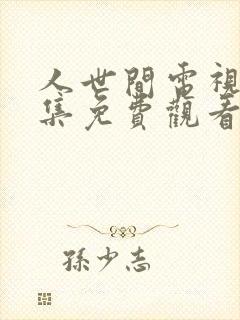 人世間電視
集免費觀看
孫少志